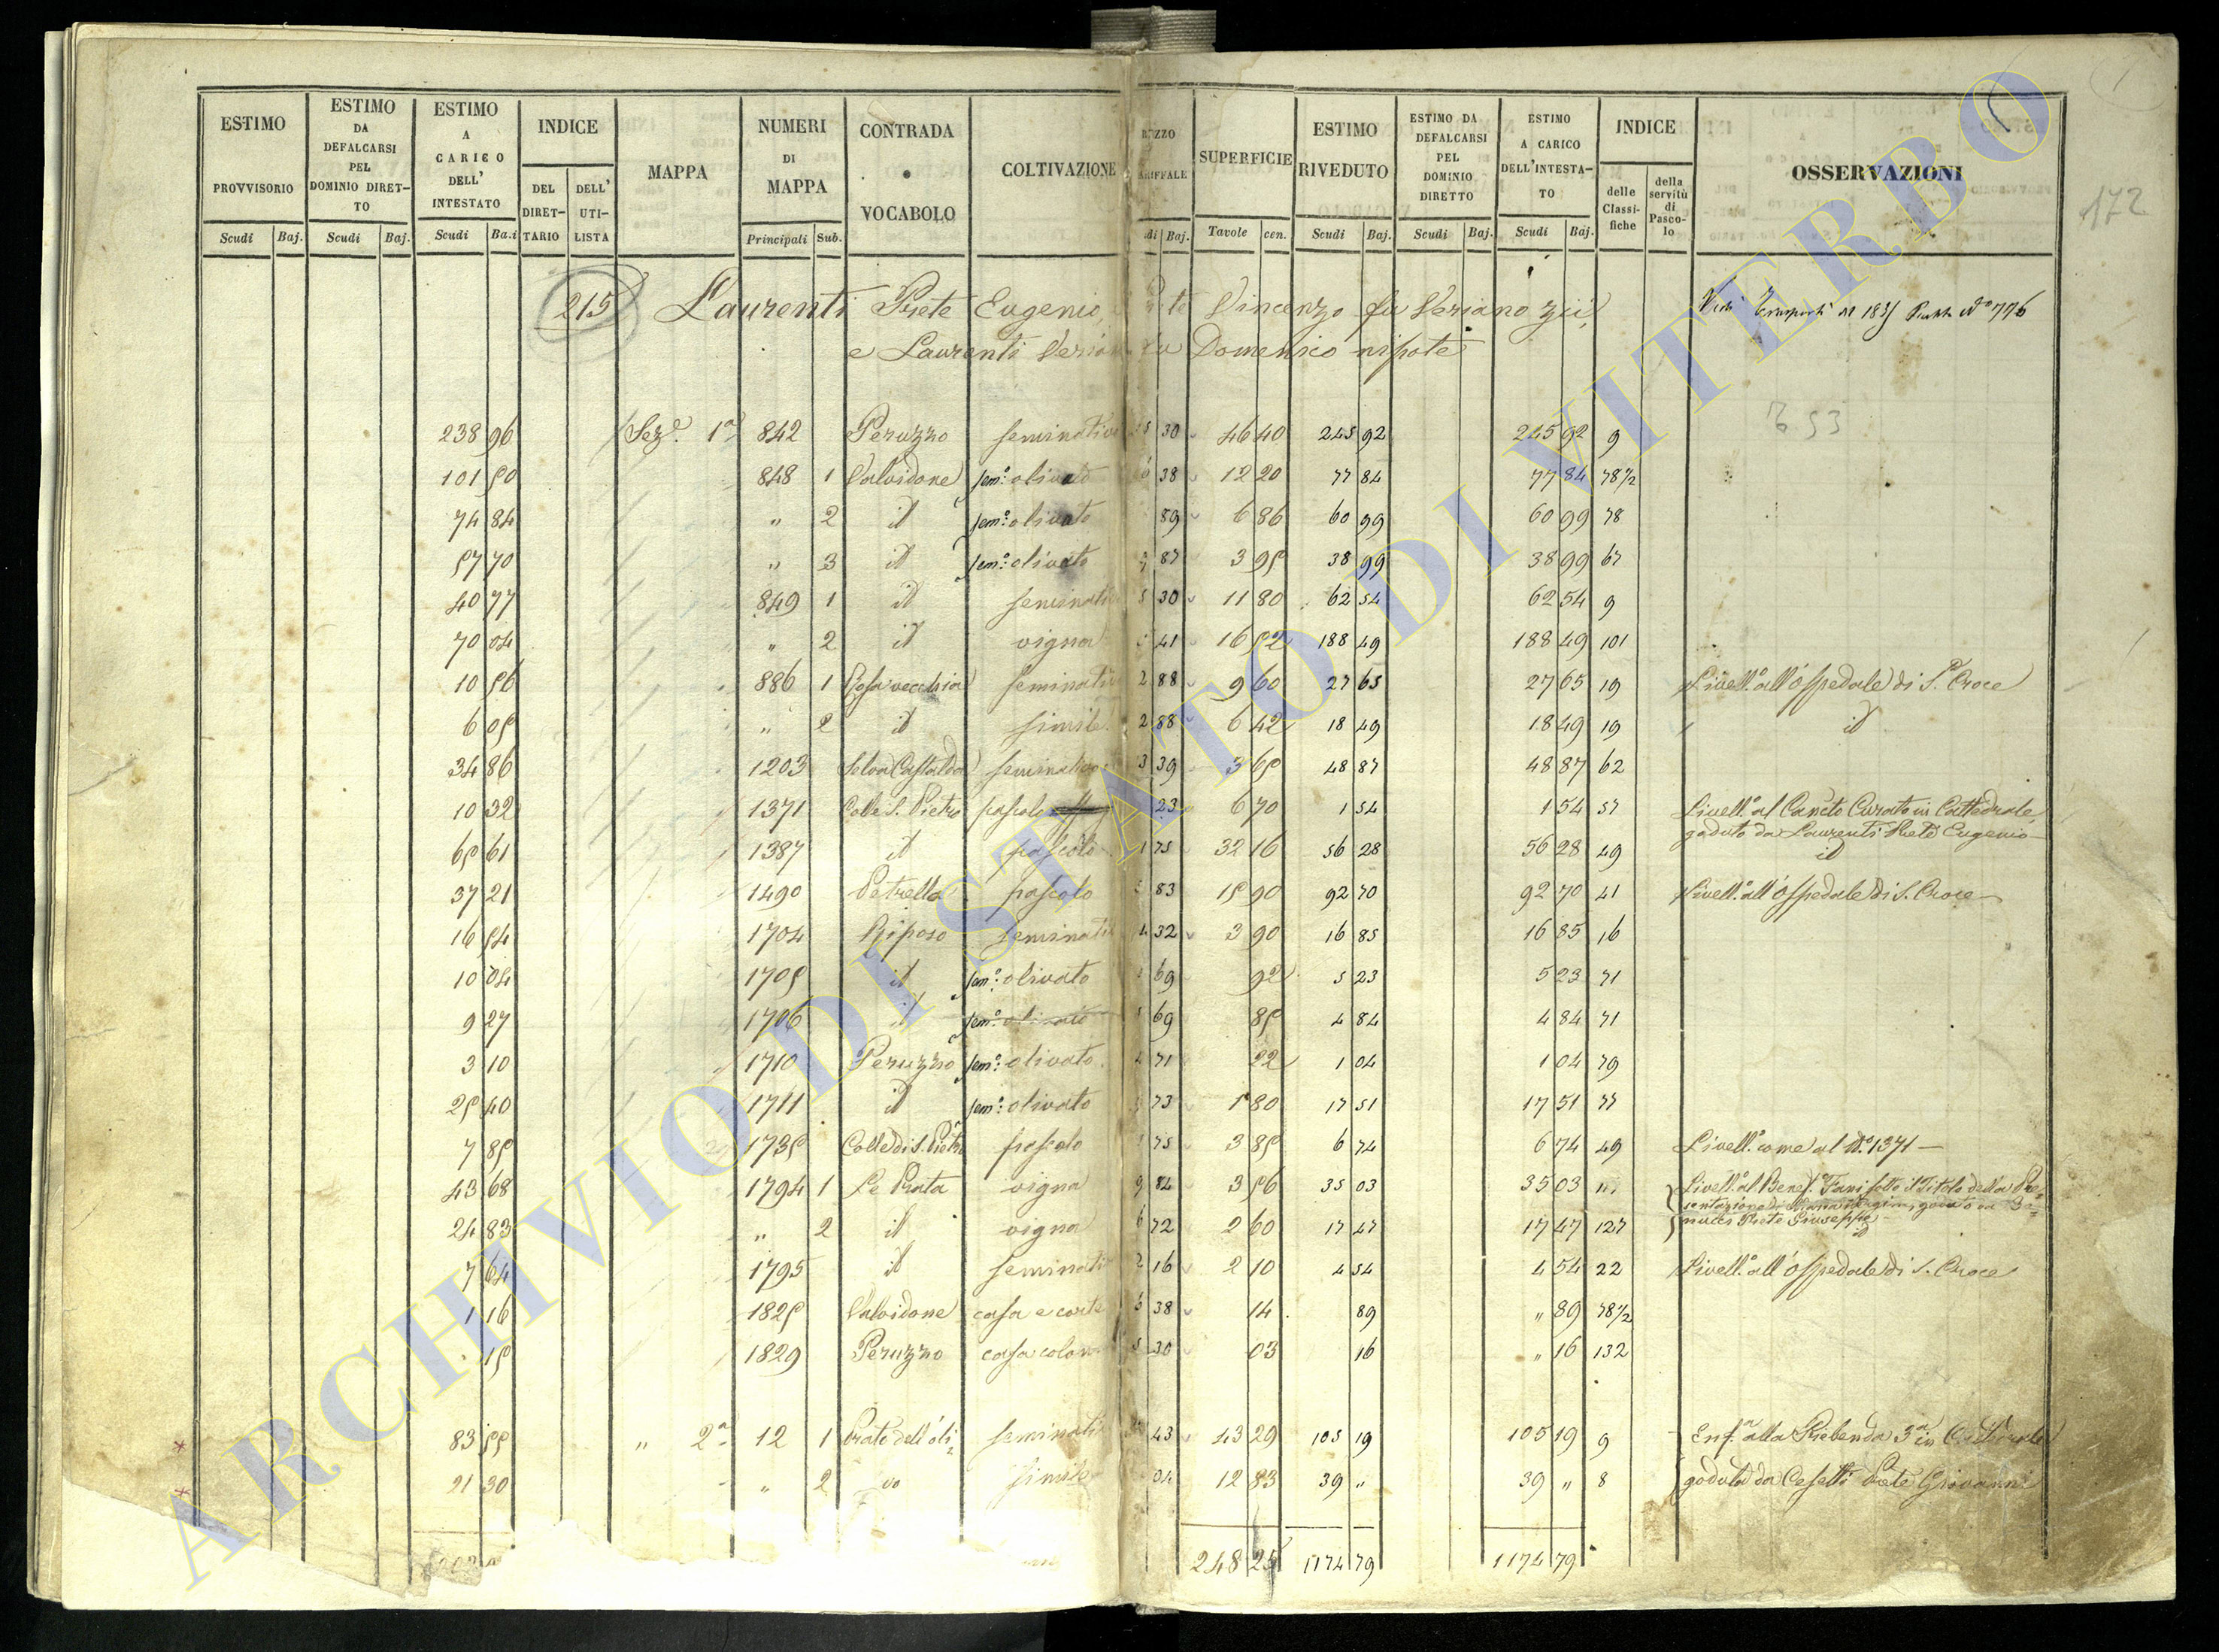 ESTIMO PROVVISORIO | ESTIMO DA DEFALCARSI PEL DOMINIO DIRET-TO | ESTIMO A CARICO DELL' INTESTATO | INDICE | MAPPA | NUMERI DI MAPPA | CONTRADA o VOCABOLO | COLTIVAZIONE | SUPERFICIE | ESTIMO RIVEDUTO | ESTIMO DA DEFALCARSI PEL DOMINIO DIRETTO | ESTIMO A CARICO DELL'INTESTA-TO | INDICE | OSSERVAZIONI
DEL DIRET-TARIO | DELL' UTI-LISTA | delle Classi-fiche | della servitù di Pasco-lo
Scudi | Baj. | Scudi | Baj. | Scudi | Ba.i | Principali | Sub. | Baj. | Tavole | cen. | Scudi | Baj. | Scudi | Baj. | Scudi | Baj.
172
215 Laurenti Prete Eugenio, Vincenzo fu Veriano zii, Vedi N° 776
e Laurenti Domenico nipote
238 96 Sez.e 1a 842 Peruzzo seminativo 30 46 40 245 92 245 92 9
101 50 848 1 Valvidone sem.o olivato 38 12 20 77 84 77 84 78 1/2
74 84 " 2 id sem.o olivato 89 6 86 60 99 60 99 78
57 70 " 3 id sem.o olivato 87 3 95 38 99 38 99 67
40 77 849 1 id seminativo 30 11 80 62 54 62 54 9
70 04 " 2 id vigna 41 16 52 188 49 188 49 101
10 56 886 1 seminativo 2 88 9 60 27 65 27 65 19 Livell.o all'Ospedale di S. Croce
6 05 " 2 id simile 2 88 6 42 18 49 18 49 19 id
34 86 1203 seminativo 3 39 3 65 48 87 48 87 62
10 32 1371 Colle S. Pietro pascolo 23 6 70 1 54 1 54 57 Livell.o al Curato in Cattedrale
goduto da Laurenti Prete Eugenio
65 61 1387 id pascolo 1 75 32 16 56 28 56 28 49 id
37 21 1490 Petrella pascolo 83 15 90 92 70 92 70 41 Livell.o all'Ospedale di S. Croce
16 54 1704 Riposo seminativo 32 3 90 16 85 16 85 16
10 04 1705 id sem.o olivato 69 92 5 23 5 23 71
9 27 1706 id sem.o olivato 69 85 4 84 4 84 71
3 10 1710 Peruzzo sem.o olivato 71 22 1 04 1 04 79
25 40 1711 id sem.o olivato 73 1 80 17 51 17 51 77
7 85 1735 Colle di S. Pietro pascolo 75 3 85 6 74 6 74 49 Livell.o come al N.o 1371
43 68 1794 1 Le Prata vigna 9 84 3 56 35 03 35 03 Livell.o al Benef.o sotto il Titolo della Pre=
sentazione di Maria Vergine, goduto da
24 83 " 2 id vigna 6 72 2 60 17 47 17 47 127 Prete Giuseppe
7 64 1795 id seminativo 2 16 2 10 4 54 4 54 22 Livell.o all'Ospedale di S. Croce
1 16 1825 Valvidone casa e corte 38 14 89 " 89 78 1/2
15 1829 Peruzzo casa colon 30 03 16 " 16 132
83 55 " 2a 12 1 Prato dell'Oli= seminativo 43 13 29 105 19 105 19 9 Enf.a alla Prebenda 3a in Cattedrale
21 30 " 2 vo simile 04 12 83 39 " 39 " 8 goduta da Cesetti Prete Giovanni
248 25 1174 79 1174 79
ARCHIVIO DI STATO DI VITERBO